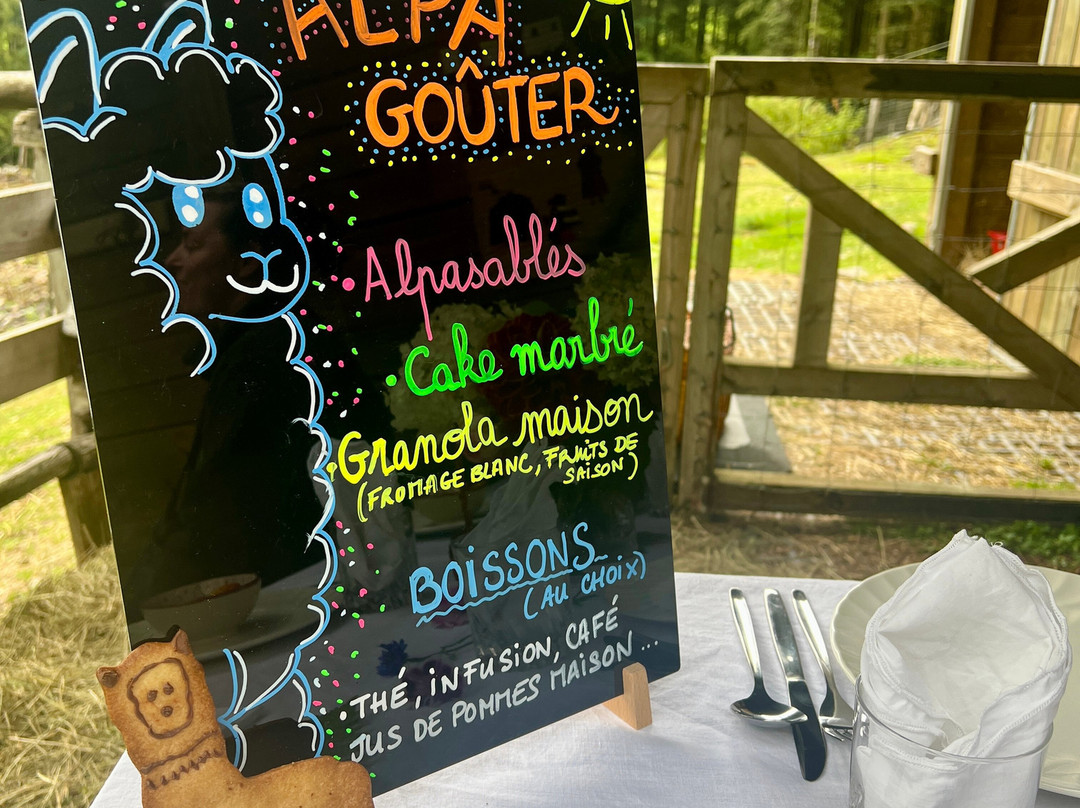 ALPA
GOÛTER
• Alpasablés
• Cake marbré
• Granola maison
(FROMAGE BLANC, FRUITS DE
SAISON)
BOISSONS
(AU CHOIX)
• THÉ, iNFUSiON, CAFÉ
JUS DE POMMES MAiSON ...